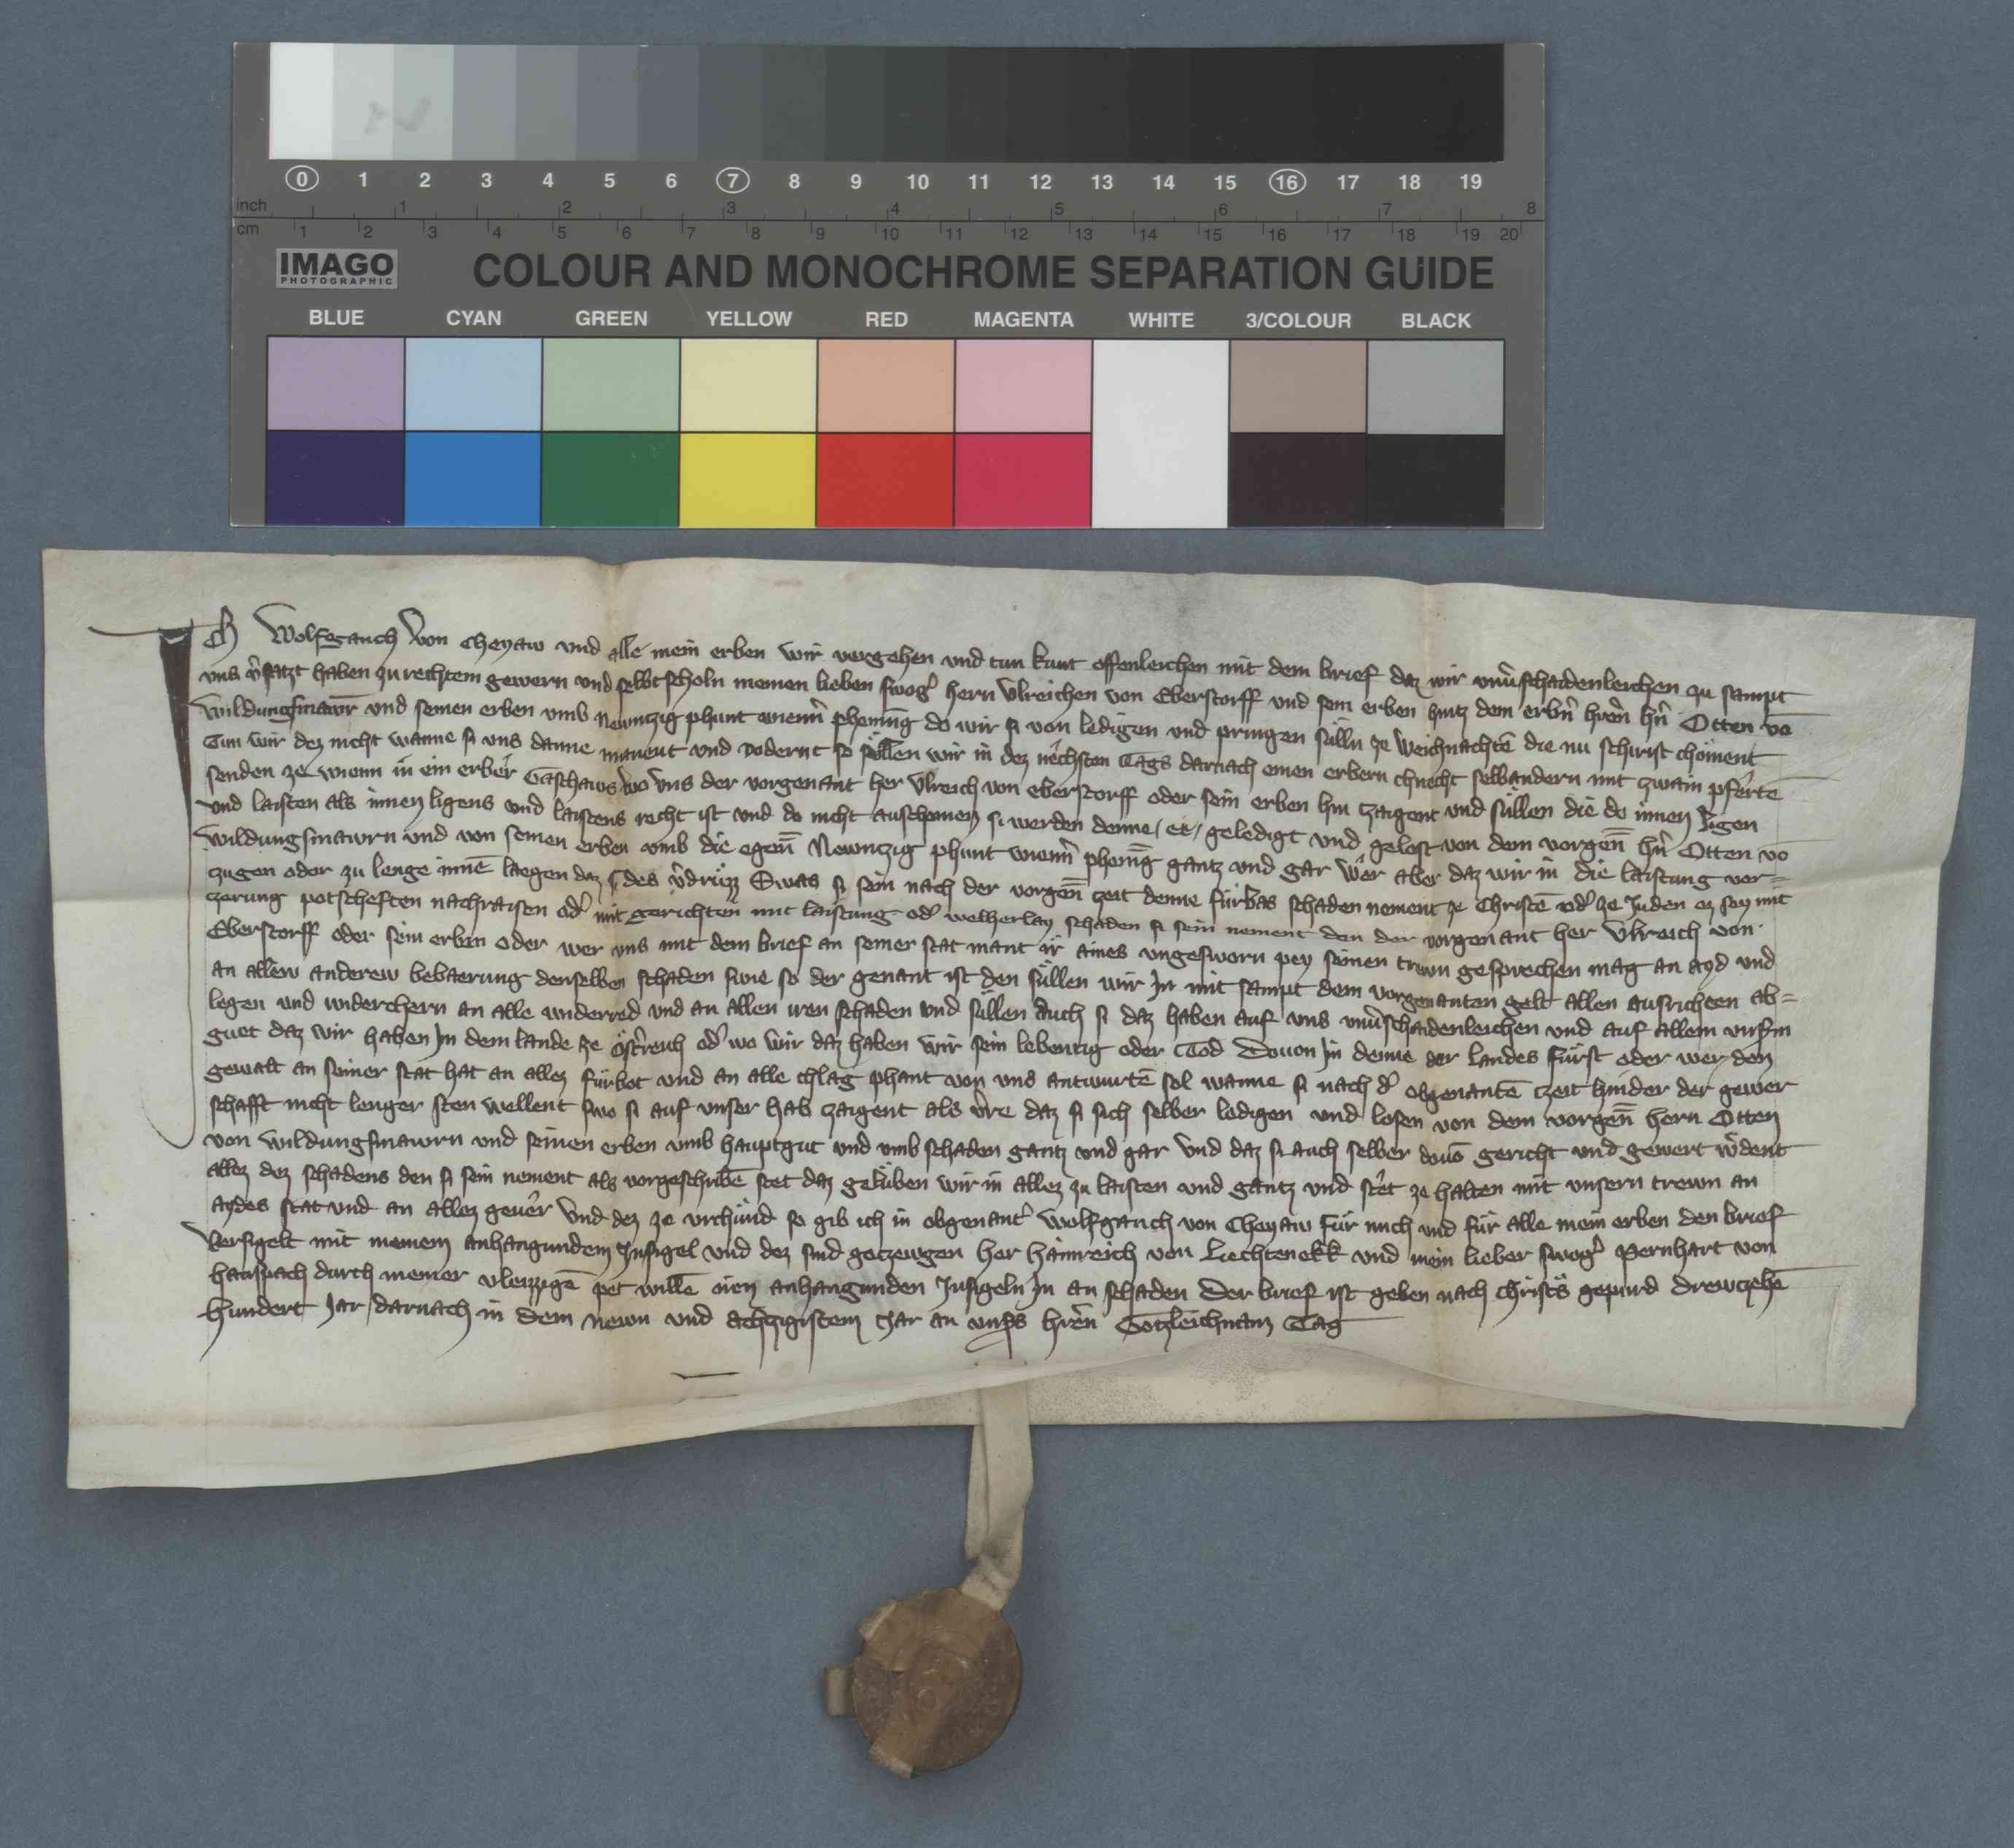 0 1 2 3 4 5 6 7 8 9 10 11 12 13 14 15 16 17 18 19
inch 1 2 3 4 5 6 7 8
cm 1 2 3 4 5 6 7 8 9 10 11 12 13 14 15 16 17 18 19 20
IMAGO
PHOTOGRAPHIC
COLOUR AND MONOCHROME SEPARATION GUIDE
BLUE CYAN GREEN YELLOW RED MAGENTA WHITE 3/COLOUR BLACK
Ich Wolfgauch von Cheyaw vnd alle mein erben wir vergehen vnd tun kunt offenleichen mit dem brief daz wir vnuͦschaidenleichen zu sampt
vns v̉satzt haben zu rechtem gewern vnd selbtscholn meinen lieben swog̉ hern Vlreichen von Eberstorff vnd sein erben hintz dem erbn̉ hren̉ hn̉ Otten vō
Wildungsmawr̄ vnd seinen erben vmb Newntzig phunt wienn̉ phening do wir si von ledigen vnd pringen sülln ze Weichnachtē die nu schirist choment
Tün wir dez nicht wanne si vns danne manent vnd vodernt so süllen wir in dez nechsten Tags darnach einen erbern chnecht selbandern mit zwain pferte
senden ze wienn in ein erber Gasthaws wo vns der vorgenant her Vlreich von eberstorff oder sein erben hin tzaigent vnd süllen die do innen ligen
vnd laisten als innen ligens vnd laistens recht ist vnd do nicht auschomen si werden denne / ee / geledigt vnd gelost von dem vorgen̄ hn̉ Otten vō
Wildungsmawrn vnd von seinen erben vmb die egen̄ Newntzig phunt wienn̉ phenīg gantz vnd gar wer aber daz wir in die laistung ver=
zugen oder zu lenge innē laegen daz si des v̉drüzz Swas si sein nach der vorgen̄ zeit denne fürbas schaden nement ze Christē od̉ ze Juden ez sey mit
zerung potscheften nachraisen od̉ mit gerichten mit laistung od̉ welherlay schaden si sein nement den der vorgenant her Vlreich von
Eberstorff oder sein erben oder wer vns mit dem brief an seiner stat mant ir aines vngesworn pey seinen trewn gesprechen mag an ayd vnd
an allew anderew bebaerung denselben schaden swie so der genant ist den süllen wir In mit sampt dem vorgenanten gelt allen ausrichten ab=
legen vnd widerchern an alle widerred vnd an allen iren schaden vnd süllen auch si daz haben auf vns vnuͦschaidenleichen vnd auf allem vnserm
guet daz wir haben In dem lande ze Östr̉reich od̉ wo wir daz haben wir sein lebentig oder Tod Dovon In denne der landes fürst oder wer den
gewalt an seiner stat hat an allez fürbot vnd an alle chlag phant von vns antwurtē sol wanne si nach d̉ obgenantē zeit hinder der gewer
schafft nicht lenger sten wellent swo si auf vnser hab tzaigent als v̉re daz si sich selber ledigen vnd losen von dem vorgen̄ hern Otten
von Wildungsmawrn vnd seinen erben vmb hauptgut vnd vmb schaden gantz vnd gar vnd daz si auch selber dovō gericht vnd gewert w̉dent
allez dez schadens den si sein nement als vorgeschribē stet daz gelüben wir in allez zu laisten vnd gantz vnd stet ze halten mit vnsern trewn an
aydes stat vnd an allez geuer Vnd dez ze vrchünd so gib ich in obgenant̉ Wolfgauch von Cheyaw für mich vnd für alle mein erben den brief
versigelt mit meinem anhangundem Insigel vnd dez sind getzewgen her Hainreich von Liechtenekk vnd mein lieber swog̉ Pernhart von
Hauspach durch meiner vleizzigē pet willē irn anhangunden Insigeln In an schaden Der brief ist geben nach Christs gepurd drewtzehē
hundert Jar / darnach in dem Newn vnd achtzigistem Jar an vnsers hren̉ Gotzleichnam Tag